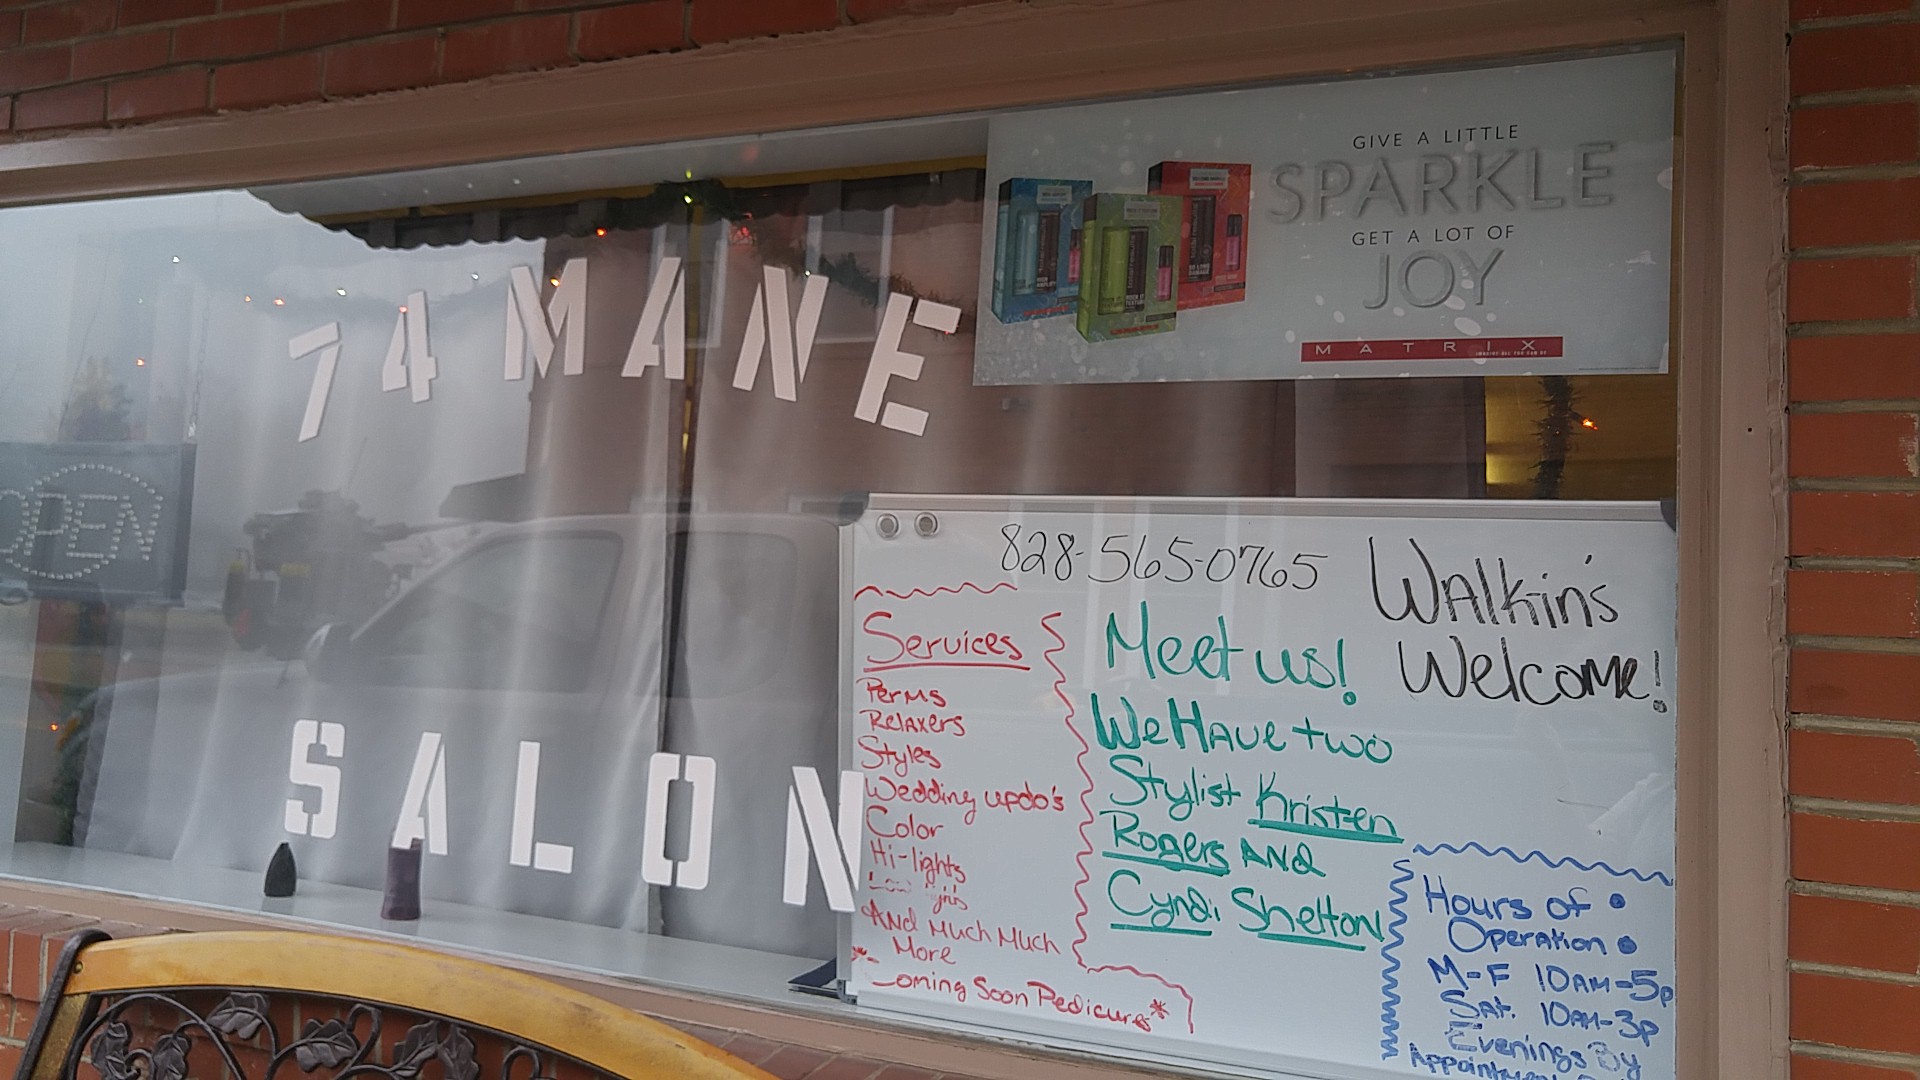 74 MANE
SALON
OPEN
GIVE A LITTLE
SPARKLE
GET A LOT OF
JOY
MATRIX
828-565-0765
WAlkin's
Welcome!
Services
Perms
Relaxers
Styles
Wedding updo's
Color
Hi-lights
AND Much Much
More
Coming Soon Pedicures*
Meet us!
We HAve two
Stylist Kristen
Rogers AND
Cyndi Shelton
Hours of
Operation
M-F 10AM-5p
SAt. 10AM-3p
Evenings By
Appointment